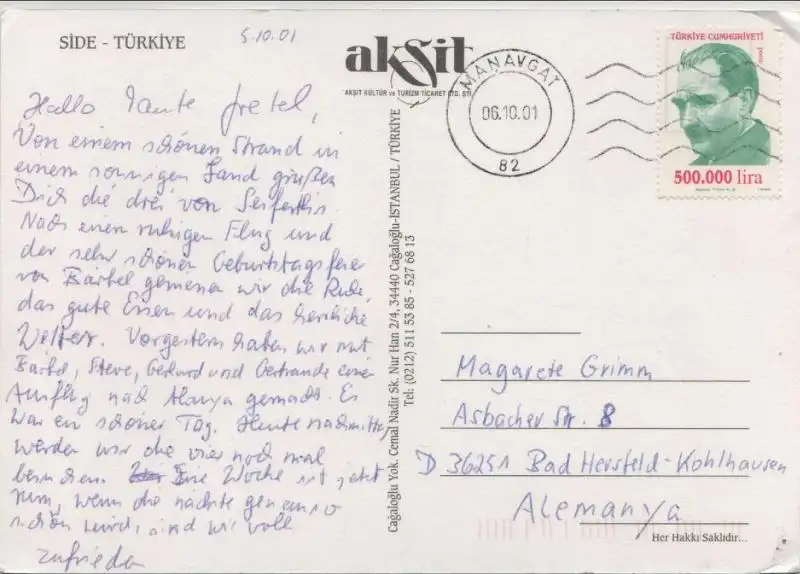 SİDE - TÜRKİYE
5.10.01
akşit
AKŞİT KÜLTÜR ve TURİZM TİCARET LTD. ŞTİ
Hallo Tante Gretel,
Von einem schönen Strand in
einem sonnigen Land grüßen
Dich die drei von Seiferths.
Nach einem ruhigen Flug und
der sehr schönen Geburtstagsfeier
von Bärbel geniessen wir die Ruhe,
das gute Essen und das herrliche
Wetter. Vorgestern haben wir mit
Bärbel, Steve, Gerhard und Gertraude einen
Ausflug nach Alanya gemacht. Es
war ein schöner Tag. Heute nachmittag
werden wir die vier noch mal
besuchen. Eine Woche ist jetzt
rum, wenn die nächste genauso
schön wird, sind wir voll
zufrieden
Cağaloğlu Yok. Cemal Nadir Sk. Nur Han 2/4, 34440 Cağaloğlu-İSTANBUL / TÜRKİYE
Tel: (0212) 511 53 85 - 527 68 13
MANAVGAT
06.10.01
82
TÜRKİYE CUMHURİYETİ
posta
500.000 lira
Magarete Grimm
Asbacher Str. 8
D 36251 Bad Hersfeld-Kohlhausen
Alemanya
Her Hakkı Saklıdır...